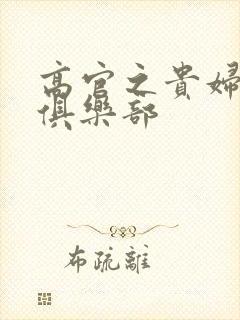 高官之貴婦
俱樂部
布疏離